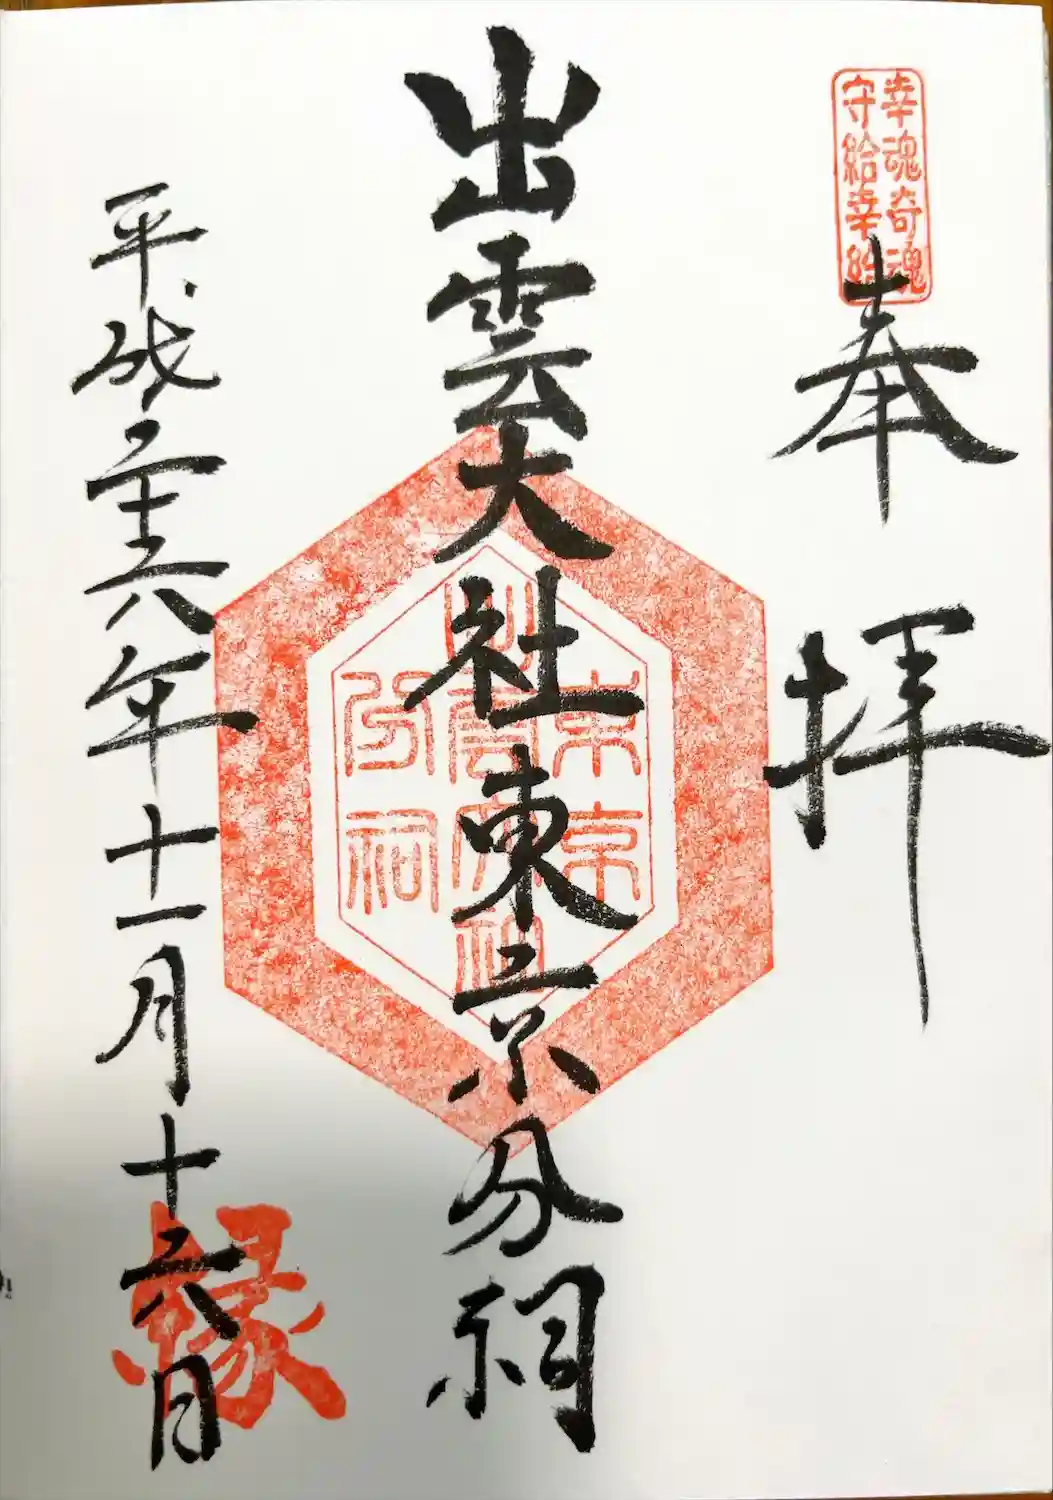 幸魂奇魂
守給幸給
奉拝
出雲大社東京分祠
東京
出雲大社
分祠
平成二十六年十一月十六日
縁